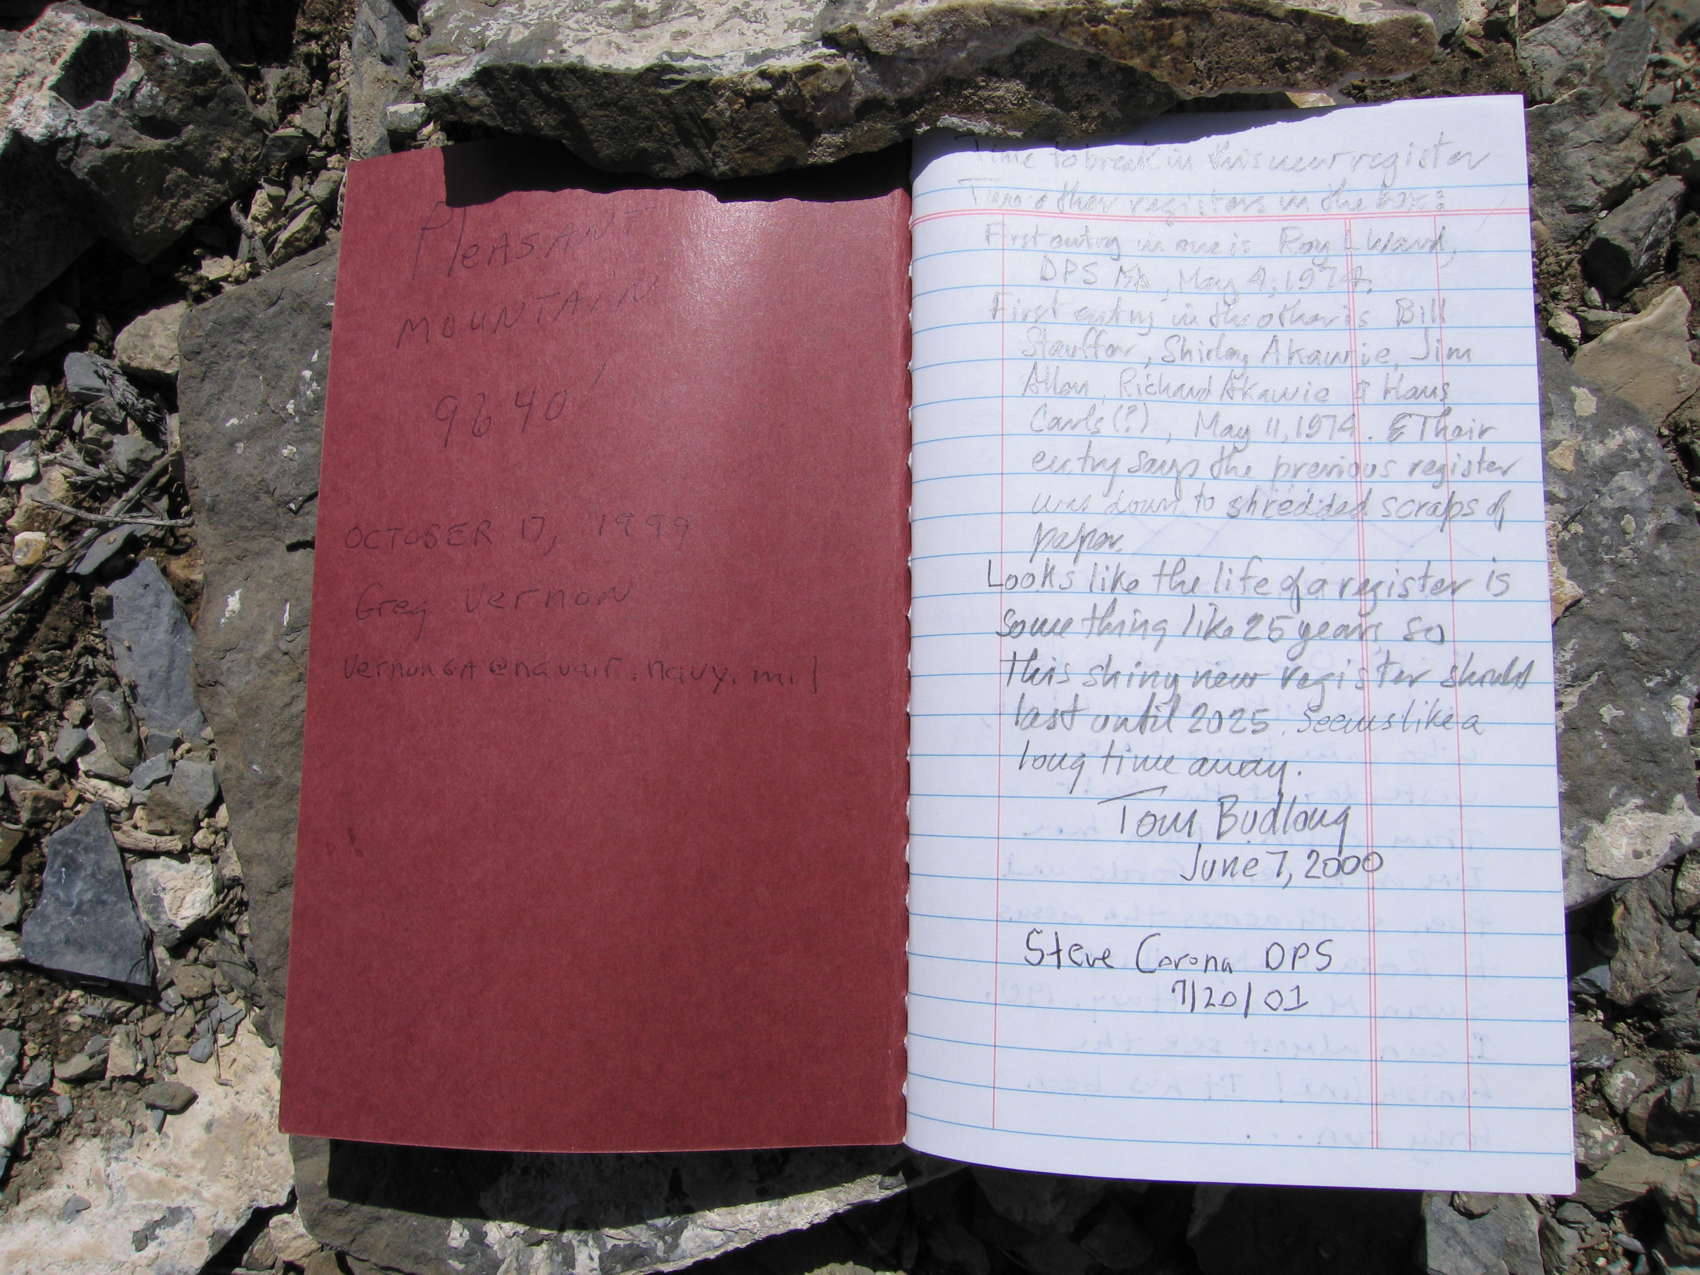 Pleasant
Mountain
9640'
October 17, 1999
Greg Vernon
vernonGA@navair.navy.mil
Time to break in this new register
Two other registers in the box:
First entry in one is Roy
DPS MA, May 4, 1974.
First entry in the other is Bill
Stauffer, Shirley Akawie, Jim
Allen, Richard Akawie & Hans
Carls(?), May 11, 1974. Their
entry says the previous register
was down to shredded scraps of
paper.
Looks like the life of a register is
something like 25 years, so
this shiny new register should
last until 2025. Seems like a
long time away.
Tom Budlong
June 7, 2000
Steve Corona DPS
7/20/01